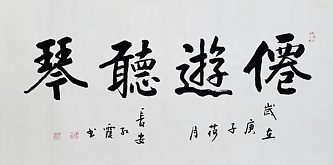 僊遊聽琴
歲在
庚
子
荷
月
長安
紅霞
书